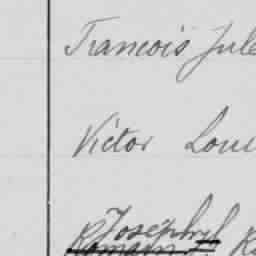 Francois Jule
Victor Loui
Joseph
Romain